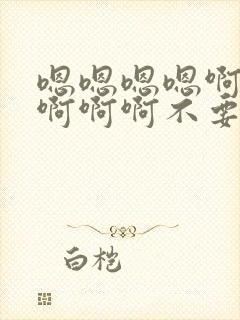 嗯嗯嗯嗯啊
啊啊啊不要
白桤